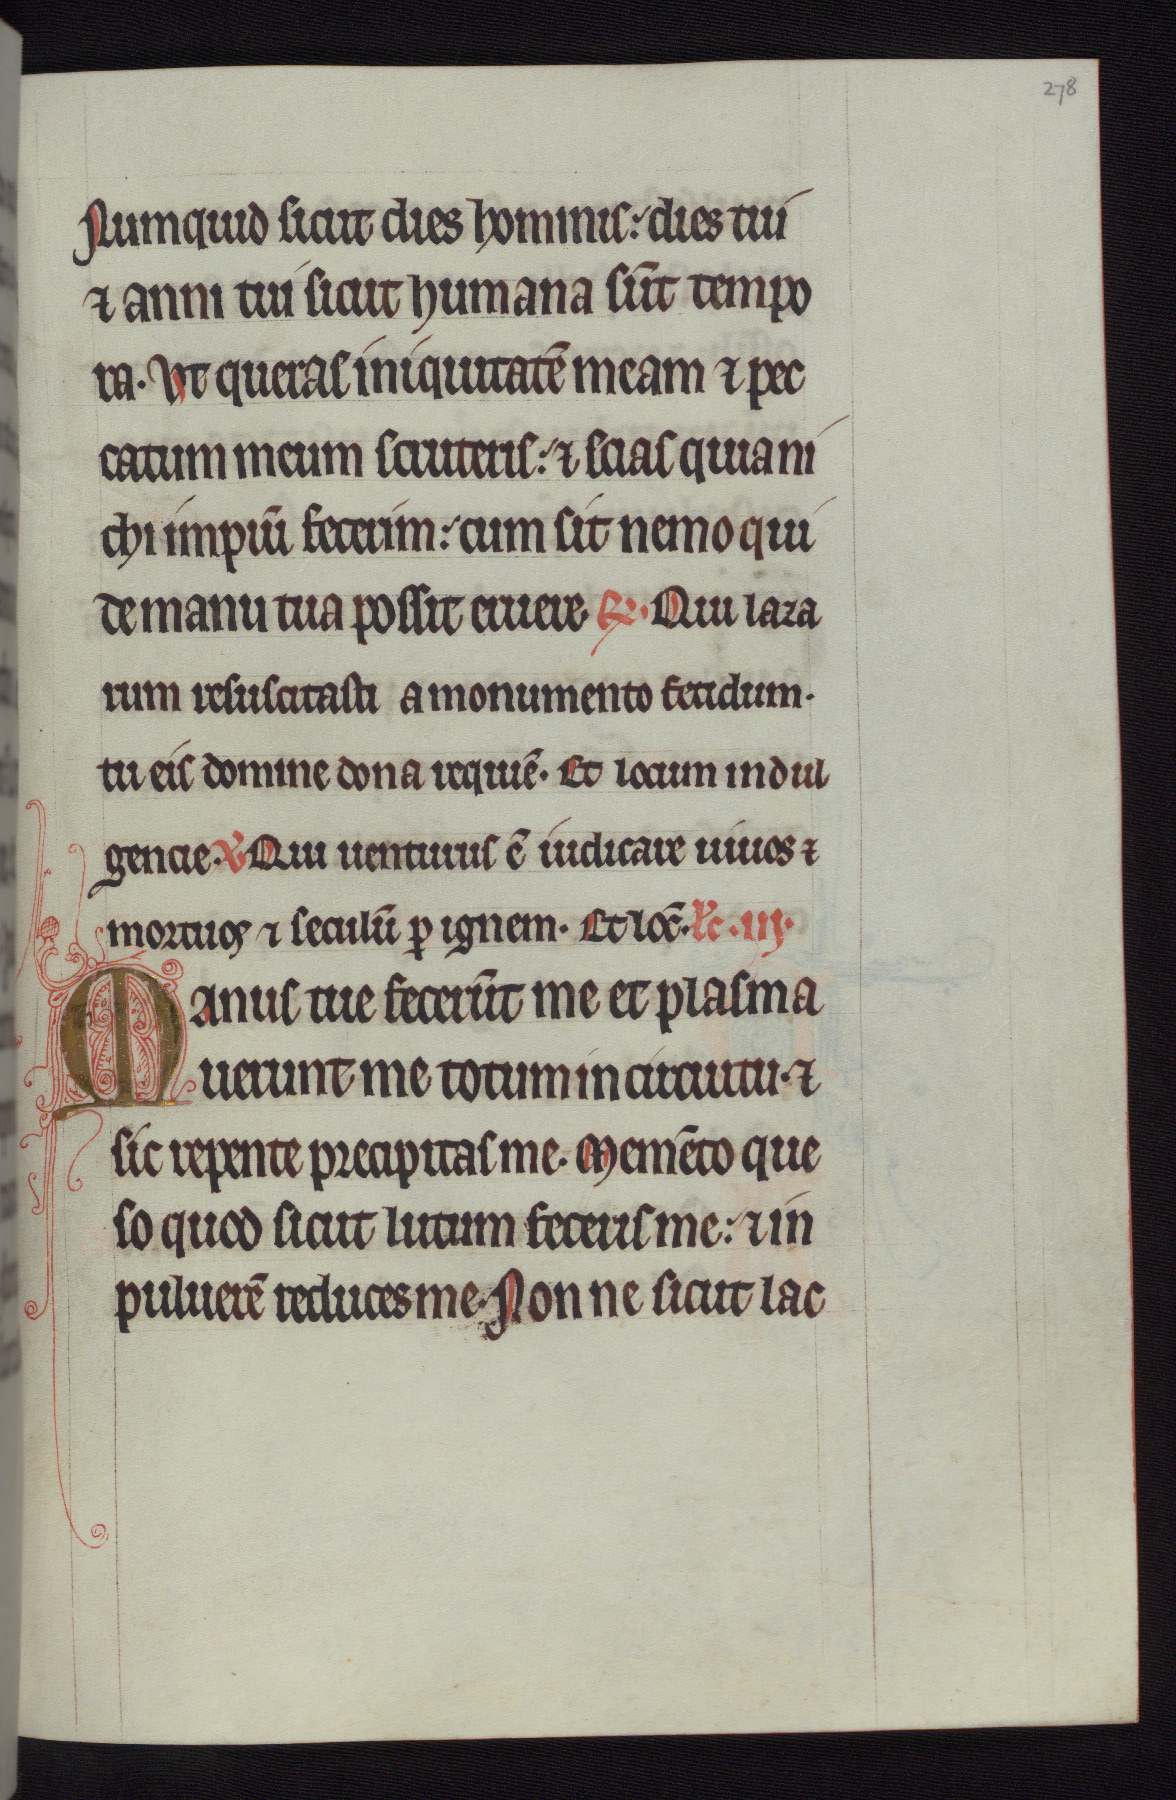 278
Numquid sicut dies hominis: dies tui
⁊ anni tui sicut humana sūt tempo
ra. Vt queras iniquitatē meam ⁊ pec
catum meum scruteris: ⁊ scias quia ni
chi impiū fecerim: cum sit nemo qui
de manu tua possit eruere. R. Qui laza
rum resuscitasti a monumento fetidum.
tu eis domine dona requiē. Et locum indul
gencie. V Qui uenturus ē iudicare uiuos ⁊
mortuos ⁊ seculū p ignem. Et loc̄. lc̄. iij.
Manus tue fecerūt me et plasma
uerunt me totum in circuitu. ⁊
sic repente precipitas me. Memēto que
so quod sicut lutum feceris me: ⁊ in
puluerē reduces me. Non ne sicut lac